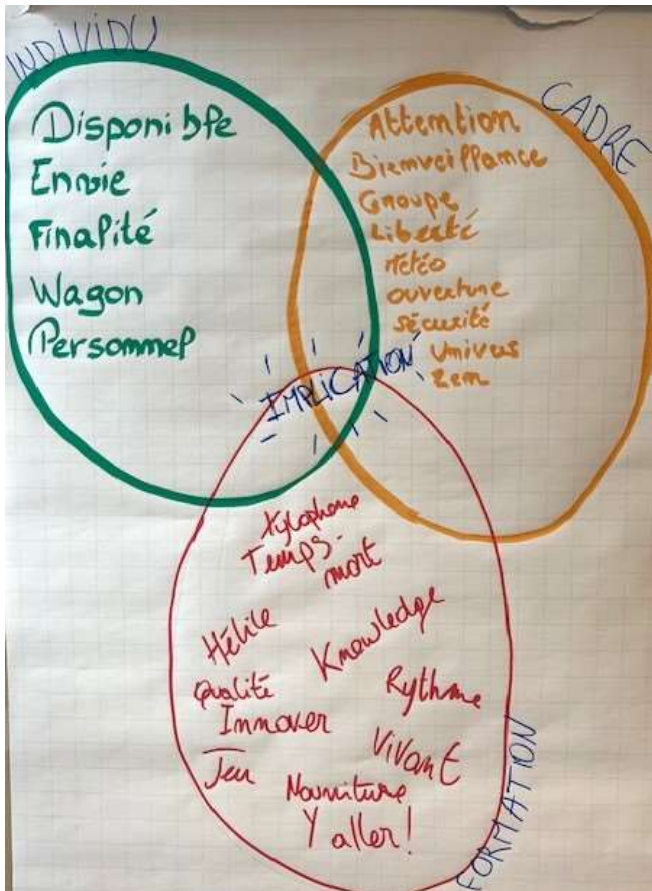 INDIVIDU
Disponible
Envie
Finalité
Wagon
Personnel
CADRE
Attention
Bienveillance
Groupe
Liberté
Météo
ouverture
sécurité
Univers
Zen
IMPLICATION
Xylophone
Temps-
mort
Hélice
Knowledge
Qualité
Rythme
Innover
Vivant
Jeu
Nourriture
Y aller!
FORMATION